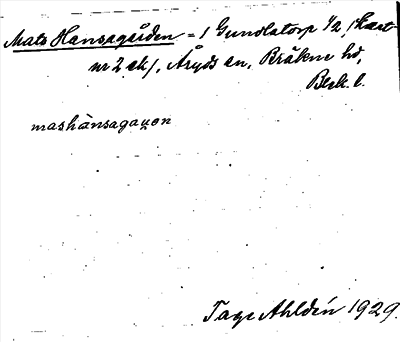 Mats Hansagården = 1 Gundlatorp 1/2 (kart-
nr 2 ek), Åryds sn, Bräkne hd,
Blek. l.
mashànsagaụen
Tage Ahldén 1929.